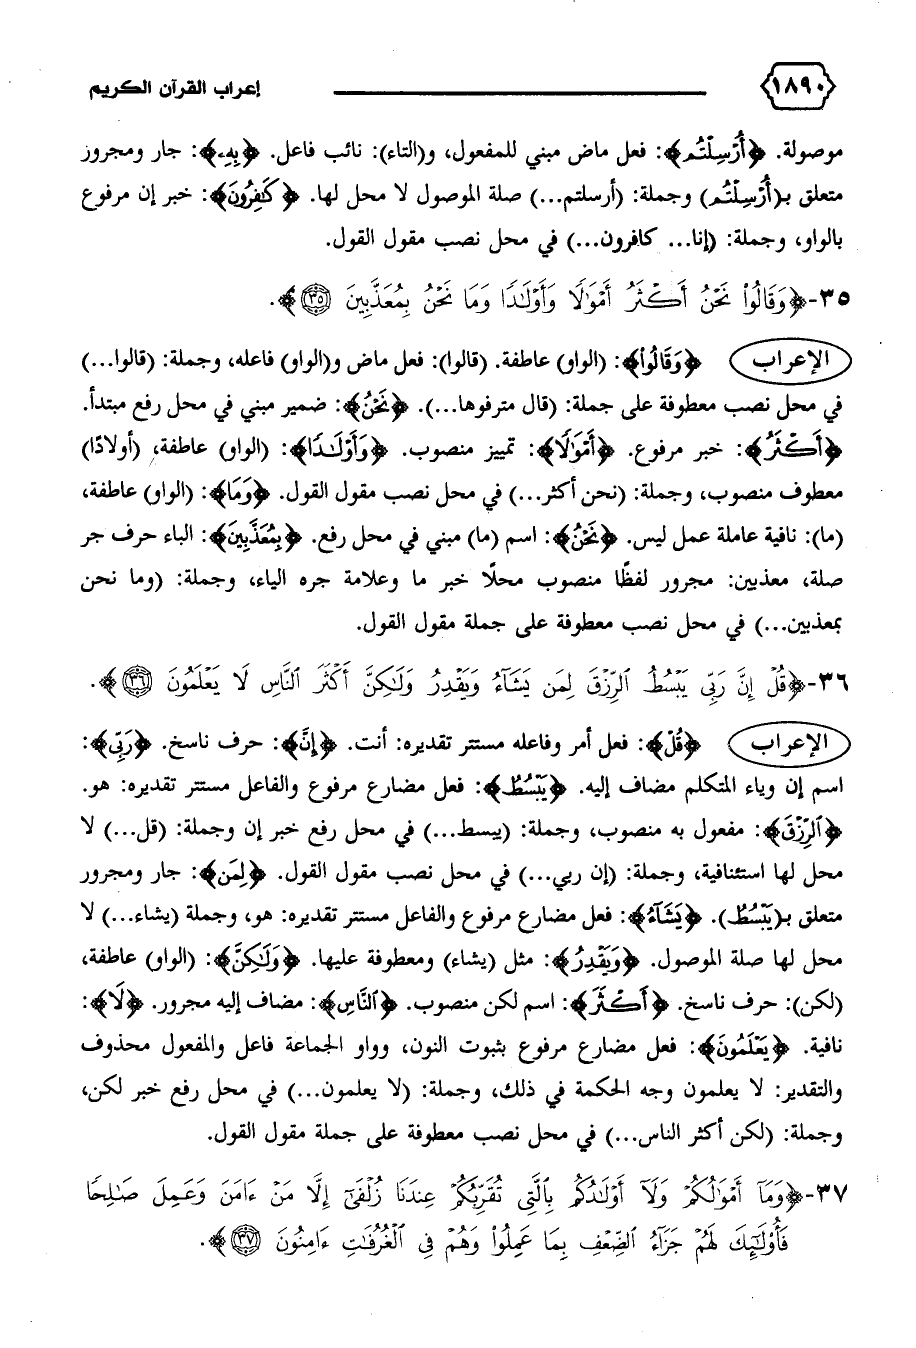 ١٨٩٠ إعراب القرآن الكريم
موصولة. ﴿أُرْسِلْتُم﴾: فعل ماض مبني للمفعول، و(التاء): نائب فاعل. ﴿بِهِۦ﴾: جار ومجروز
متعلق بـ(أُرْسِلْتُم) وجملة: (أرسلتم...) صلة الموصول لا محل لها. ﴿كَٰفِرُونَ﴾: خبر إن مرفوع
بالواو، وجملة: (إنا... كافرون...) في محل نصب مقول القول.
٣٥-﴿وَقَالُوا۟ نَحْنُ أَكْثَرُ أَمْوَٰلًا وَأَوْلَٰدًا وَمَا نَحْنُ بِمُعَذَّبِينَ ٣٥﴾.
الإعراب ﴿وَقَالُوا۟﴾: (الواو) عاطفة. (قالوا): فعل ماض و(الواو) فاعله، وجملة: (قالوا...)
في محل نصب معطوفة على جملة: (قال مترفوها...). ﴿نَحْنُ﴾: ضمير مبني في محل رفع مبتدأ.
﴿أَكْثَرُ﴾: خبر مرفوع. ﴿أَمْوَٰلًا﴾: تمييز منصوب. ﴿وَأَوْلَٰدًا﴾: (الواو) عاطفة، (أولادًا)
معطوف منصوب، وجملة: (نحن أكثر...) في محل نصب مقول القول. ﴿وَمَا﴾: (الواو) عاطفة،
(ما): نافية عاملة عمل ليس. ﴿نَحْنُ﴾: اسم (ما) مبني في محل رفع. ﴿بِمُعَذَّبِينَ﴾: الباء حرف جر
صلة، معذبين: مجرور لفظًا منصوب محلًا خبر ما وعلامة جره الياء، وجملة: (وما نحن
بمعذبين...) في محل نصب معطوفة على جملة مقول القول.
٣٦-﴿قُلْ إِنَّ رَبِّى يَبْسُطُ ٱلرِّزْقَ لِمَن يَشَآءُ وَيَقْدِرُ وَلَٰكِنَّ أَكْثَرَ ٱلنَّاسِ لَا يَعْلَمُونَ ٣٦﴾.
الإعراب ﴿قُلْ﴾: فعل أمر وفاعله مستتر تقديره: أنت. ﴿إِنَّ﴾: حرف ناسخ. ﴿رَبِّى﴾:
اسم إن وياء المتكلم مضاف إليه. ﴿يَبْسُطُ﴾: فعل مضارع مرفوع والفاعل مستتر تقديره: هو.
﴿ٱلرِّزْقَ﴾: مفعول به منصوب، وجملة: (يبسط...) في محل رفع خبر إن وجملة: (قل...) لا
محل لها استئنافية، وجملة: (إن ربي...) في محل نصب مقول القول. ﴿لِمَن﴾: جار ومجرور
متعلق بـ(يَبْسُطُ). ﴿يَشَآءُ﴾: فعل مضارع مرفوع والفاعل مستتر تقديره: هو، وجملة (يشاء...) لا
محل لها صلة الموصول. ﴿وَيَقْدِرُ﴾: مثل (يشاء) ومعطوفة عليها. ﴿وَلَٰكِنَّ﴾: (الواو) عاطفة،
(لكن): حرف ناسخ. ﴿أَكْثَرَ﴾: اسم لكن منصوب. ﴿ٱلنَّاسِ﴾: مضاف إليه مجرور. ﴿لَا﴾:
نافية. ﴿يَعْلَمُونَ﴾: فعل مضارع مرفوع بثبوت النون، وواو الجماعة فاعل والمفعول محذوف
والتقدير: لا يعلمون وجه الحكمة في ذلك، وجملة: (لا يعلمون...) في محل رفع خبر لكن،
وجملة: (لكن أكثر الناس...) في محل نصب معطوفة على جملة مقول القول.
٣٧-﴿وَمَآ أَمْوَٰلُكُمْ وَلَآ أَوْلَٰدُكُم بِٱلَّتِى تُقَرِّبُكُمْ عِندَنَا زُلْفَىٰٓ إِلَّا مَنْ ءَامَنَ وَعَمِلَ صَٰلِحًا
فَأُو۟لَٰٓئِكَ لَهُمْ جَزَآءُ ٱلضِّعْفِ بِمَا عَمِلُوا۟ وَهُمْ فِى ٱلْغُرُفَٰتِ ءَامِنُونَ ٣٧﴾.